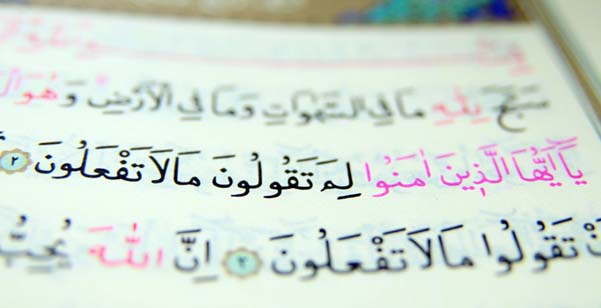 سَبَّحَ لِلّٰهِ مَا فِي السَّمٰوَاتِ وَمَا فِي الْاَرْضِ وَهُوَ
يَٓا اَيُّهَا الَّذ۪ينَ اٰمَنُوا لِمَ تَقُولُونَ مَا لَا تَفْعَلُونَ ٢
تَقُولُوا مَا لَا تَفْعَلُونَ ٣ اِنَّ اللّٰهَ يُحِبُّ